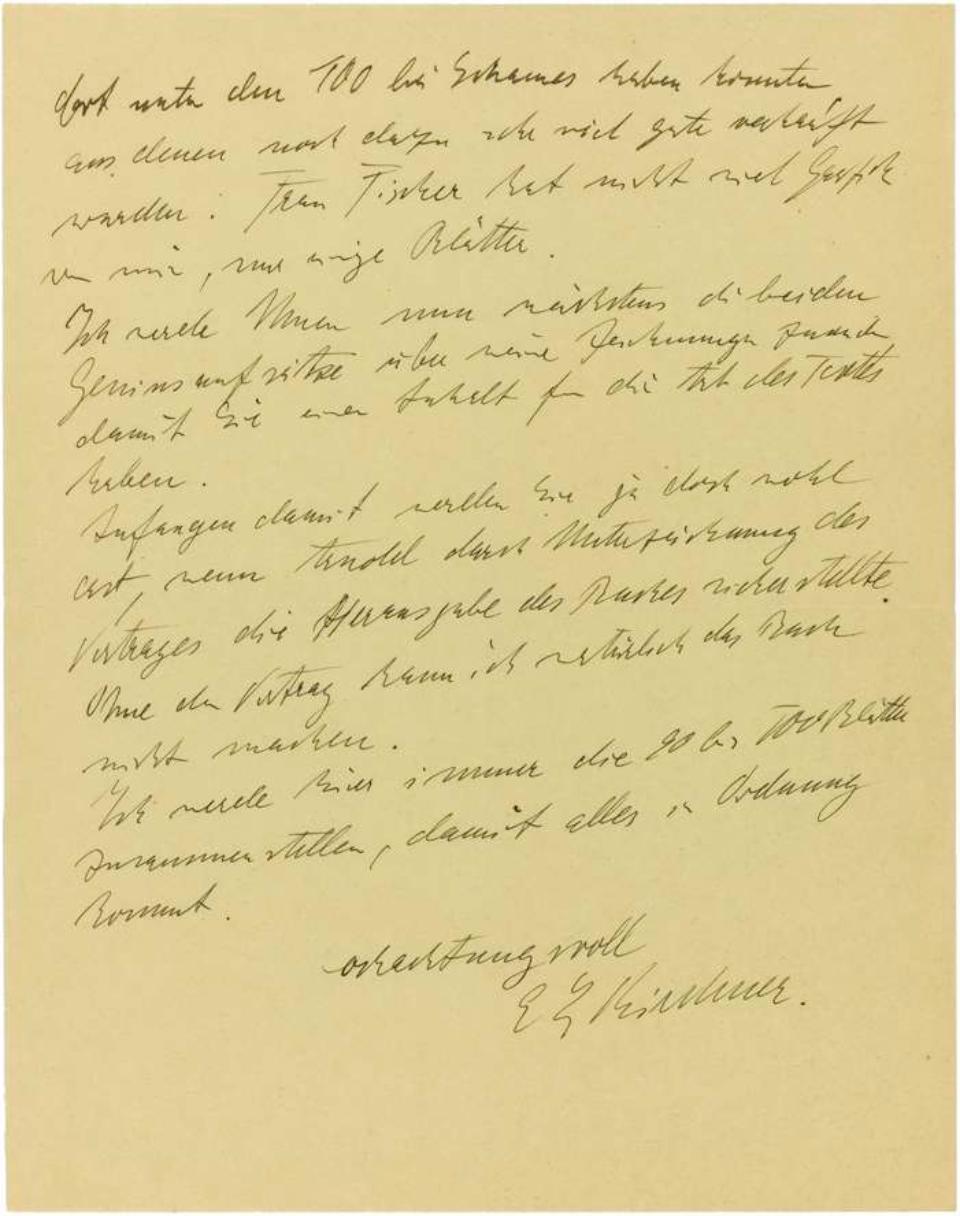 dort unter den 100 bei Schames haben konnten
aus denen noch dazu sehr viel gute verkauft
wurden. Frau Fischer hat nicht viel Grafik
von mir, nur einige Blätter.
Ich werde Ihnen nun nächstens die beiden
Geniusaufsätze über meine Zeichnungen zusenden
damit Sie einen Anhalt für die Art des Textes
haben.
Anfangen damit werden Sie ja doch wohl
erst, wenn Arnold durch Unterzeichnung des
Vertrages die Herausgabe des Buches sicherstellte.
Ohne den Vertrag kann ich natürlich das Buch
nicht machen.
Ich werde hier immer die 90 bis 100 Blätter
zusammenstellen, damit alles in Ordnung
kommt.
ochachtungsvoll
E L Kirchner.